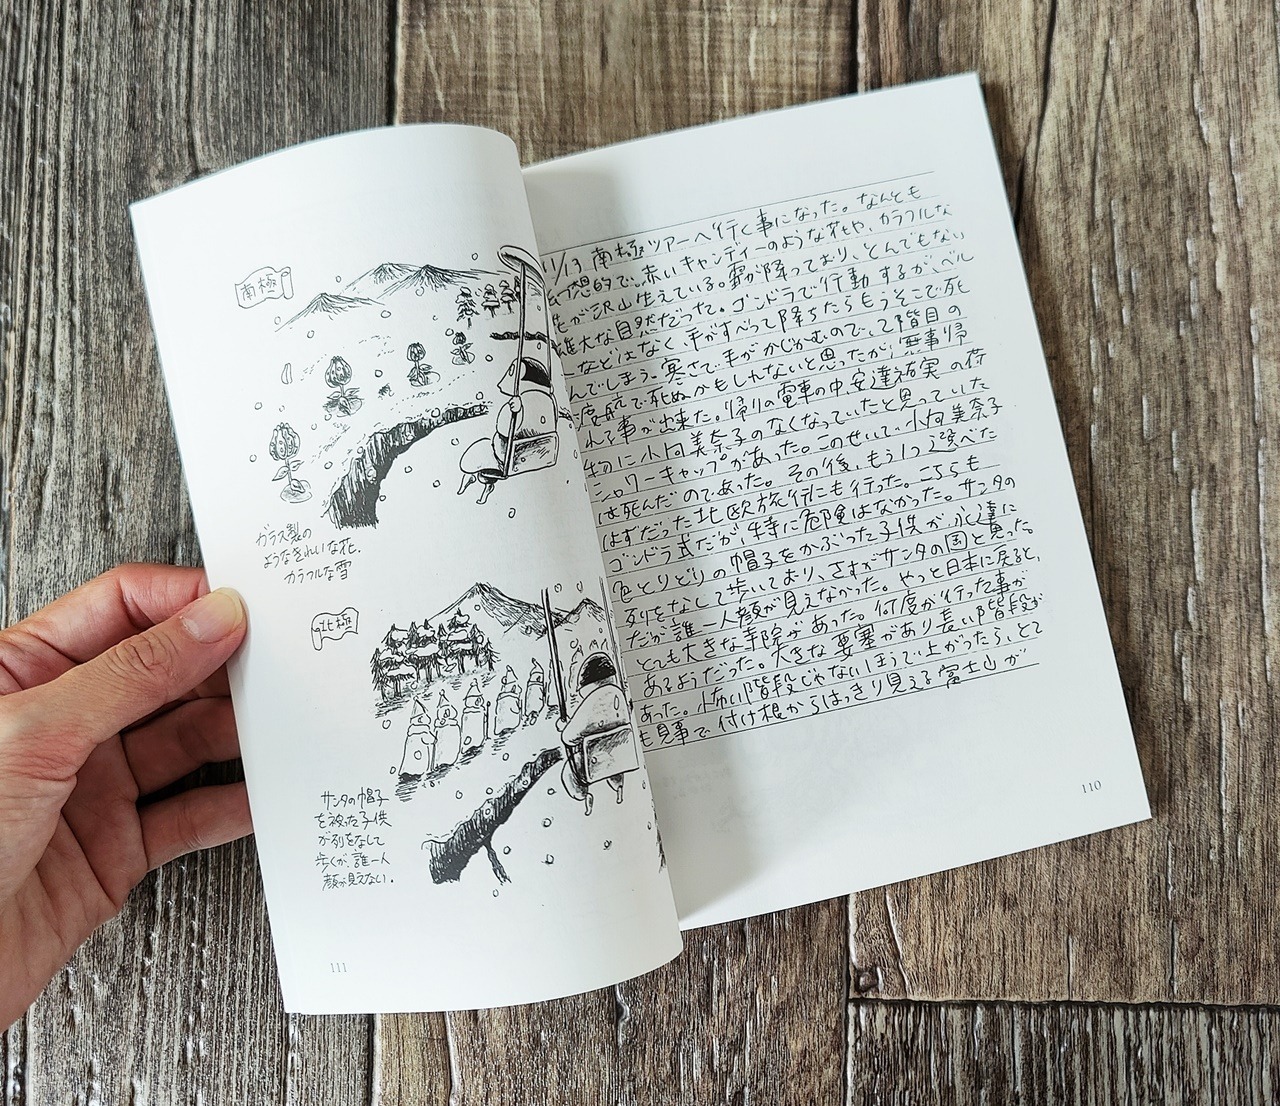 11/13 南極ツアーへ行く事になった。なんとも
想的で、赤いキャンディーのような花や、カラフルな
花が沢山生えている。霧が降っており、とんでもない
雄大な自然だった。ゴンドラで行動するが、ベル
などはなく、手がすべって降ちたらもうそこで死
んでしまう。寒さで手がかじかむので、て階目の
渡航で死ぬかもしれないと思ったが、無事帰
れて事が出来た。帰りの電車の中安達祐実の荷
物に小向美奈子のなくなっていたと思っていた
シャワーキャップがあった。このせいで、小向美奈子
は死んだのであった。その後、もう1つ選べた
はずだった北欧旅行にも行った。こちらも
ゴンドラ式だが、特に危険はなかった。サンタの
色とりどりの帽子をかぶった子供が永遠に
列をなして歩いており、さすがサンタの国と思った。
だが誰一人顔が見えなかった。やっと日本に戻ると、
とても大きな寺院があった。何度か行った事が
あるようだった。大きな要塞があり長い階段が
あった。怖い階段じゃないほうで上がったら、とて
も見事で付け根からはっきり見える富士山が
110
南極
ガラス製の
ようなきれいな花。
カラフルな雪
北極
サンタの帽子
を被った子供
が列をなして
歩くが、誰一人
顔が見えない。
111